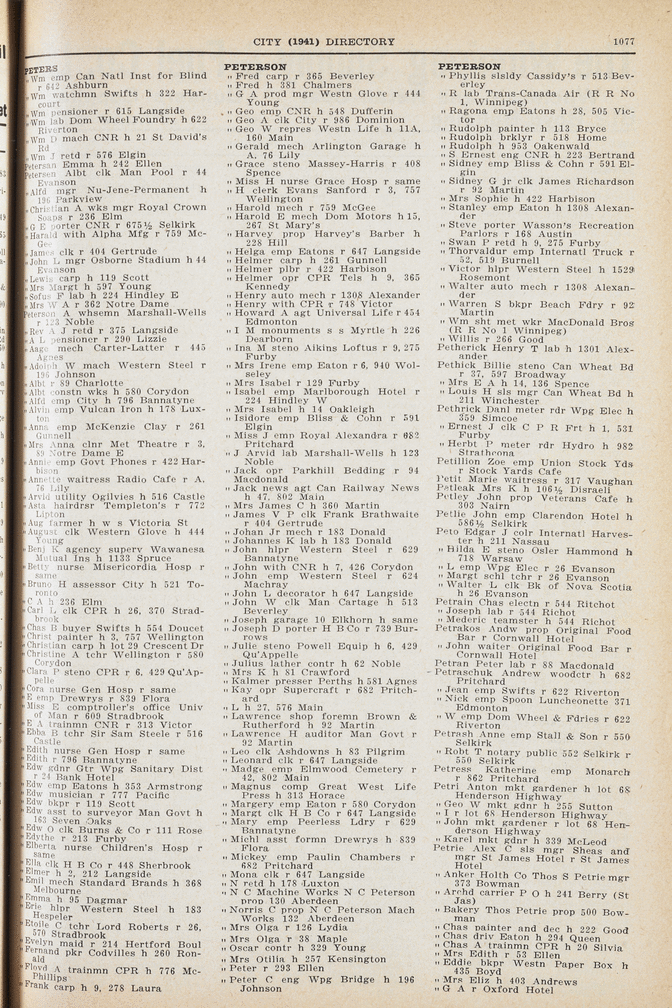 CITY (1941) DIRECTORY 1077
PETERS
„ Wm emp Can Natl Inst for Blind
r 642 Ashburn
„ Wm watchmn Swifts h 322 Har-
court
„ Wm pensioner r 615 Langside
„ Wm lab Dom Wheel Foundry h 622
Riverton
„ Wm D mach CNR h 21 St David's
Rd
„ Wm J retd r 576 Elgin
Petersan Emma h 242 Ellen
Petersen Albt clk Man Pool r 44
Evanson
„ Alfd mgr Nu-Jene-Permanent h
196 Parkview
„ Christian A wks mgr Royal Crown
Soaps r 236 Elm
„ G E porter CNR r 675½ Selkirk
„ Harald with Alpha Mfg r 759 Mc-
Gee
„ James clk r 404 Gertrude
„ John L mgr Osborne Stadium h 44
Evanson
„ Lewis carp h 119 Scott
„ Mrs Margt h 597 Young
„ Sofus F lab h 224 Hindley E
„ Mrs W A r 362 Notre Dame
Peterson A whsemn Marshall-Wells
r 123 Noble
„ Rev A J retd r 375 Langside
„ A L pensioner r 290 Lizzie
„ Aage mech Carter-Latter r 445
Agnes
„ Adolph W mach Western Steel r
196 Johnson
„ Albt r 89 Charlotte
„ Albt constn wks h 580 Corydon
„ Alfd emp City h 796 Bannatyne
„ Alvin emp Vulcan Iron h 178 Lux-
ton
„ Anna emp McKenzie Clay r 261
Gunnell
„ Mrs Anna clnr Met Theatre r 3,
89 Notre Dame E
„ Annie emp Govt Phones r 422 Har-
bison
„ Annette waitress Radio Cafe r A,
76 Lily
„ Arvid utility Ogilvies h 516 Castle
„ Asta hairdrsr Templeton's r 772
Lipton
„ Aug farmer h w s Victoria St
„ August clk Western Glove h 444
Young
„ Benj K agency superv Wawanesa
Mutual Ins h 1133 Spruce
„ Betty nurse Misericordia Hosp r
same
„ Bruno H assessor City h 521 To-
ronto
„ C A h 236 Elm
„ Carl L clk CPR h 26, 370 Strad-
brook
„ Chas B buyer Swifts h 554 Doucet
„ Christ painter h 3, 757 Wellington
„ Christian carp h lot 29 Crescent Dr
„ Christine A tchr Wellington r 580
Corydon
„ Clara P steno CPR r 6, 429 Qu'Ap-
pelle
„ Cora nurse Gen Hosp r same
„ E emp Drewrys r 839 Flora
„ Miss E comptroller's office Univ
of Man r 600 Stradbrook
„ E A trainmn CNR r 313 Victor
„ Ebba B tchr Sir Sam Steele r 516
Castle
„ Edith nurse Gen Hosp r same
„ Edith r 796 Bannatyne
„ Edw gdnr Gtr Wpg Sanitary Dist
r 24 Bank Hotel
„ Edw emp Eatons h 353 Armstrong
„ Edw musician r 777 Pacific
„ Edw bkpr r 119 Scott
„ Edw asst to surveyor Man Govt h
163 Seven Oaks
„ Edw O clk Burns & Co r 111 Rose
„ Edythe r 213 Furby
„ Elberta nurse Children's Hosp r
same
„ Ella clk H B Co r 448 Sherbrook
„ Elmer h 2, 212 Langside
„ Emil mech Standard Brands h 368
Melbourne
„ Emma h 95 Dagmar
„ Erie hlpr Western Steel h 183
Hespeler
„ Etoile C tchr Lord Roberts r 26,
570 Stradbrook
„ Evelyn maid r 214 Hertford Boul
„ Fernand pkr Codvilles h 260 Ron-
ald
„ Floyd A trainmn CPR h 776 Mc-
Phillips
„ Frank carp h 9, 278 Laura
PETERSON
„ Fred carp r 365 Beverley
„ Fred h 381 Chalmers
„ G A prod mgr Westn Glove r 444
Young
„ Geo emp CNR h 548 Dufferin
„ Geo A clk City r 986 Dominion
„ Geo W repres Westn Life h 11A,
160 Main
„ Gerald mech Arlington Garage h
A, 76 Lily
„ Grace steno Massey-Harris r 408
Spence
„ Miss H nurse Grace Hosp r same
„ H clerk Evans Sanford r 3, 757
Wellington
„ Harold mech r 759 McGee
„ Harold E mech Dom Motors h 15,
267 St Mary's
„ Harvey prop Harvey's Barber h
228 Hill
„ Helga emp Eatons r 647 Langside
„ Helmer carp h 261 Gunnell
„ Helmer plbr r 422 Harbison
„ Helmer opr CPR Tels h 9, 365
Kennedy
„ Henry auto mech r 1308 Alexander
„ Henry with CPR r 748 Victor
„ Howard A agt Universal Life r 454
Edmonton
„ I M monuments s s Myrtle h 226
Dearborn
„ Ina M steno Aikins Loftus r 9, 275
Furby
„ Mrs Irene emp Eaton r 6, 940 Wol-
seley
„ Mrs Isabel r 129 Furby
„ Isabel emp Marlborough Hotel r
224 Hindley W
„ Mrs Isabel h 14 Oakleigh
„ Isidore emp Bliss & Cohn r 591
Elgin
„ Miss J emp Royal Alexandra r 682
Pritchard
„ J Arvid lab Marshall-Wells h 123
Noble
„ Jack opr Parkhill Bedding r 94
Macdonald
„ Jack news agt Can Railway News
h 47, 802 Main
„ Mrs James C h 360 Martin
„ James V P clk Frank Brathwaite
r 404 Gertrude
„ Johan Jr mech r 183 Donald
„ Johannes K lab h 183 Donald
„ John hlpr Western Steel r 629
Bannatyne
„ John with CNR h 7, 426 Corydon
„ John emp Western Steel r 624
Machray
„ John L decorator h 647 Langside
„ John W clk Man Cartage h 513
Beverley
„ Joseph garage 10 Elkhorn h same
„ Joseph D porter H B Co r 739 Bur-
rows
„ Julie steno Powell Equip h 6, 429
Qu'Appelle
„ Julius lather contr h 62 Noble
„ Mrs K h 81 Crawford
„ Kalmer presser Perths h 581 Agnes
„ Kay opr Supercraft r 682 Pritch-
ard
„ L h 27, 576 Main
„ Lawrence shop foremn Brown &
Rutherford h 92 Martin
„ Lawrence H auditor Man Govt r
92 Martin
„ Leo clk Ashdowns h 83 Pilgrim
„ Leonard clk r 647 Langside
„ Madge emp Elmwood Cemetery r
42, 802 Main
„ Magnus comp Great West Life
Press h 313 Horace
„ Margery emp Eaton r 580 Corydon
„ Margt clk H B Co r 647 Langside
„ Mary emp Peerless Ldry r 629
Bannatyne
„ Michl asst formn Drewrys h 839
Flora
„ Mickey emp Paulin Chambers r
682 Pritchard
„ Mona clk r 647 Langside
„ N retd h 178 Luxton
„ N C Machine Works N C Peterson
prop 130 Aberdeen
„ Norris C prop N C Peterson Mach
Works 132 Aberdeen
„ Mrs Olga r 126 Lydia
„ Mrs Olga r 38 Maple
„ Oscar contr h 329 Young
„ Mrs Otilia h 257 Kensington
„ Peter r 293 Ellen
„ Peter C eng Wpg Bridge h 196
Johnson
PETERSON
„ Phyllis slsldy Cassidy's r 513 Bev-
erley
„ R lab Trans-Canada Air (R R No
1, Winnipeg)
„ Ragona emp Eatons h 28, 505 Vic-
tor
„ Rudolph painter h 113 Bryce
„ Rudolph brklyr r 518 Home
„ Rudolph h 953 Oakenwald
„ S Ernest eng CNR h 223 Bertrand
„ Sidney emp Bliss & Cohn r 591 El-
gin
„ Sidney G jr clk James Richardson
r 92 Martin
„ Mrs Sophie h 422 Harbison
„ Stanley emp Eaton h 1308 Alexan-
der
„ Steve porter Wasson's Recreation
Parlors r 168 Austin
„ Swan P retd h 9, 275 Furby
„ Thorvaldur emp Internatl Truck r
52, 519 Burnell
„ Victor hlpr Western Steel h 1529
Rosemont
„ Walter auto mech r 1308 Alexan-
der
„ Warren S bkpr Beach Fdry r 92
Martin
„ Wm sht met wkr MacDonald Bros
(R R No 1 Winnipeg)
„ Willis r 266 Good
Petherick Henry T lab h 1301 Alex-
ander
Pethick Billie steno Can Wheat Bd
r 37, 597 Broadway
„ Mrs E A h 14, 136 Spence
„ Louis H sls mgr Can Wheat Bd h
211 Winchester
Pethrick Danl meter rdr Wpg Elec h
359 Simcoe
„ Ernest J clk C P R Frt h 1, 531
Furby
„ Herbt P meter rdr Hydro h 982
Strathcona
Petillion Zoe emp Union Stock Yds
r Stock Yards Cafe
Petit Marie waitress r 317 Vaughan
Petleak Mrs K h 106½ Disraeli
Petley John prop Veterans Cafe h
303 Nairn
Petlie John emp Clarendon Hotel h
586½ Selkirk
Peto Edgar J colr Internatl Harves-
ter h 211 Nassau
„ Hilda E steno Osler Hammond h
718 Warsaw
„ L emp Wpg Elec r 26 Evanson
„ Margt schl tchr r 26 Evanson
„ Walter L clk Bk of Nova Scotia
h 26 Evanson
Petrain Chas electn r 544 Ritchot
„ Joseph lab r 544 Richot
„ Mederic teamster h 544 Richot
Petrakos Andw prop Original Food
Bar r Cornwall Hotel
„ John waiter Original Food Bar r
Cornwall Hotel
Petran Peter lab r 88 Macdonald
Petraschuk Andrew woodctr h 682
Pritchard
„ Jean emp Swifts r 622 Riverton
„ Nick emp Spoon Luncheonette 371
Edmonton
„ W emp Dom Wheel & Fdries r 622
Riverton
Petrash Anne emp Stall & Son r 550
Selkirk
„ Robt T notary public 552 Selkirk r
550 Selkirk
Petress Katherine emp Monarch
r 862 Pritchard
Petri Anton mkt gardener h lot 68
Henderson Highway
„ Geo W mkt gdnr h 255 Sutton
„ I r lot 68 Henderson Highway
„ John mkt gardener r lot 68 Hen-
derson Highway
„ Karel mkt gdnr h 339 McLeod
Petrie Alex C sls mgr Sheas and
mgr St James Hotel r St James
Hotel
„ Anker Holth Co Thos S Petrie mgr
373 Bowman
„ Archd carrier P O h 241 Berry (St
Jas)
„ Bakery Thos Petrie prop 500 Bow-
man
„ Chas painter and dec h 222 Good
„ Chas driv Eaton h 294 Queen
„ Chas A trainmn CPR h 20 Silvia
„ Mrs Edith r 53 Ellen
„ Eddie bkpr Westn Paper Box h
435 Boyd
„ Mrs Eliz h 403 Andrews
„ G A r Oxford Hotel